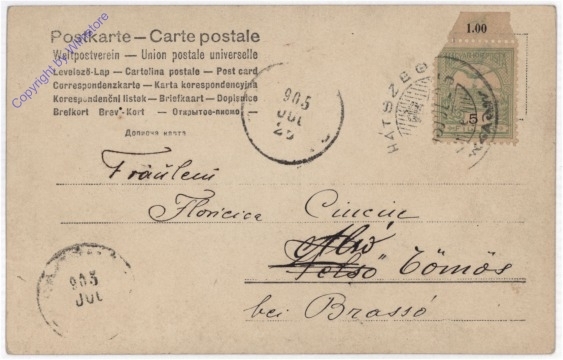 Postkarte — Carte postale
Weltpostverein — Union postale universelle
Levelező-Lap — Cartolina postale — Post card
Correspondenzkarte — Karta korespondencyjna
Korespondenční lístek — Briefkaart — Dopisnice
Brefkort Brev-Kort — Открытое письмо —
Дописна карта
Copyright by
1.00
5
HÁTSZEG
905
JUL
25
Fräulein
Floricica Cincinc
Alsó
Felső Tömös
bei Brassó
905
JUL